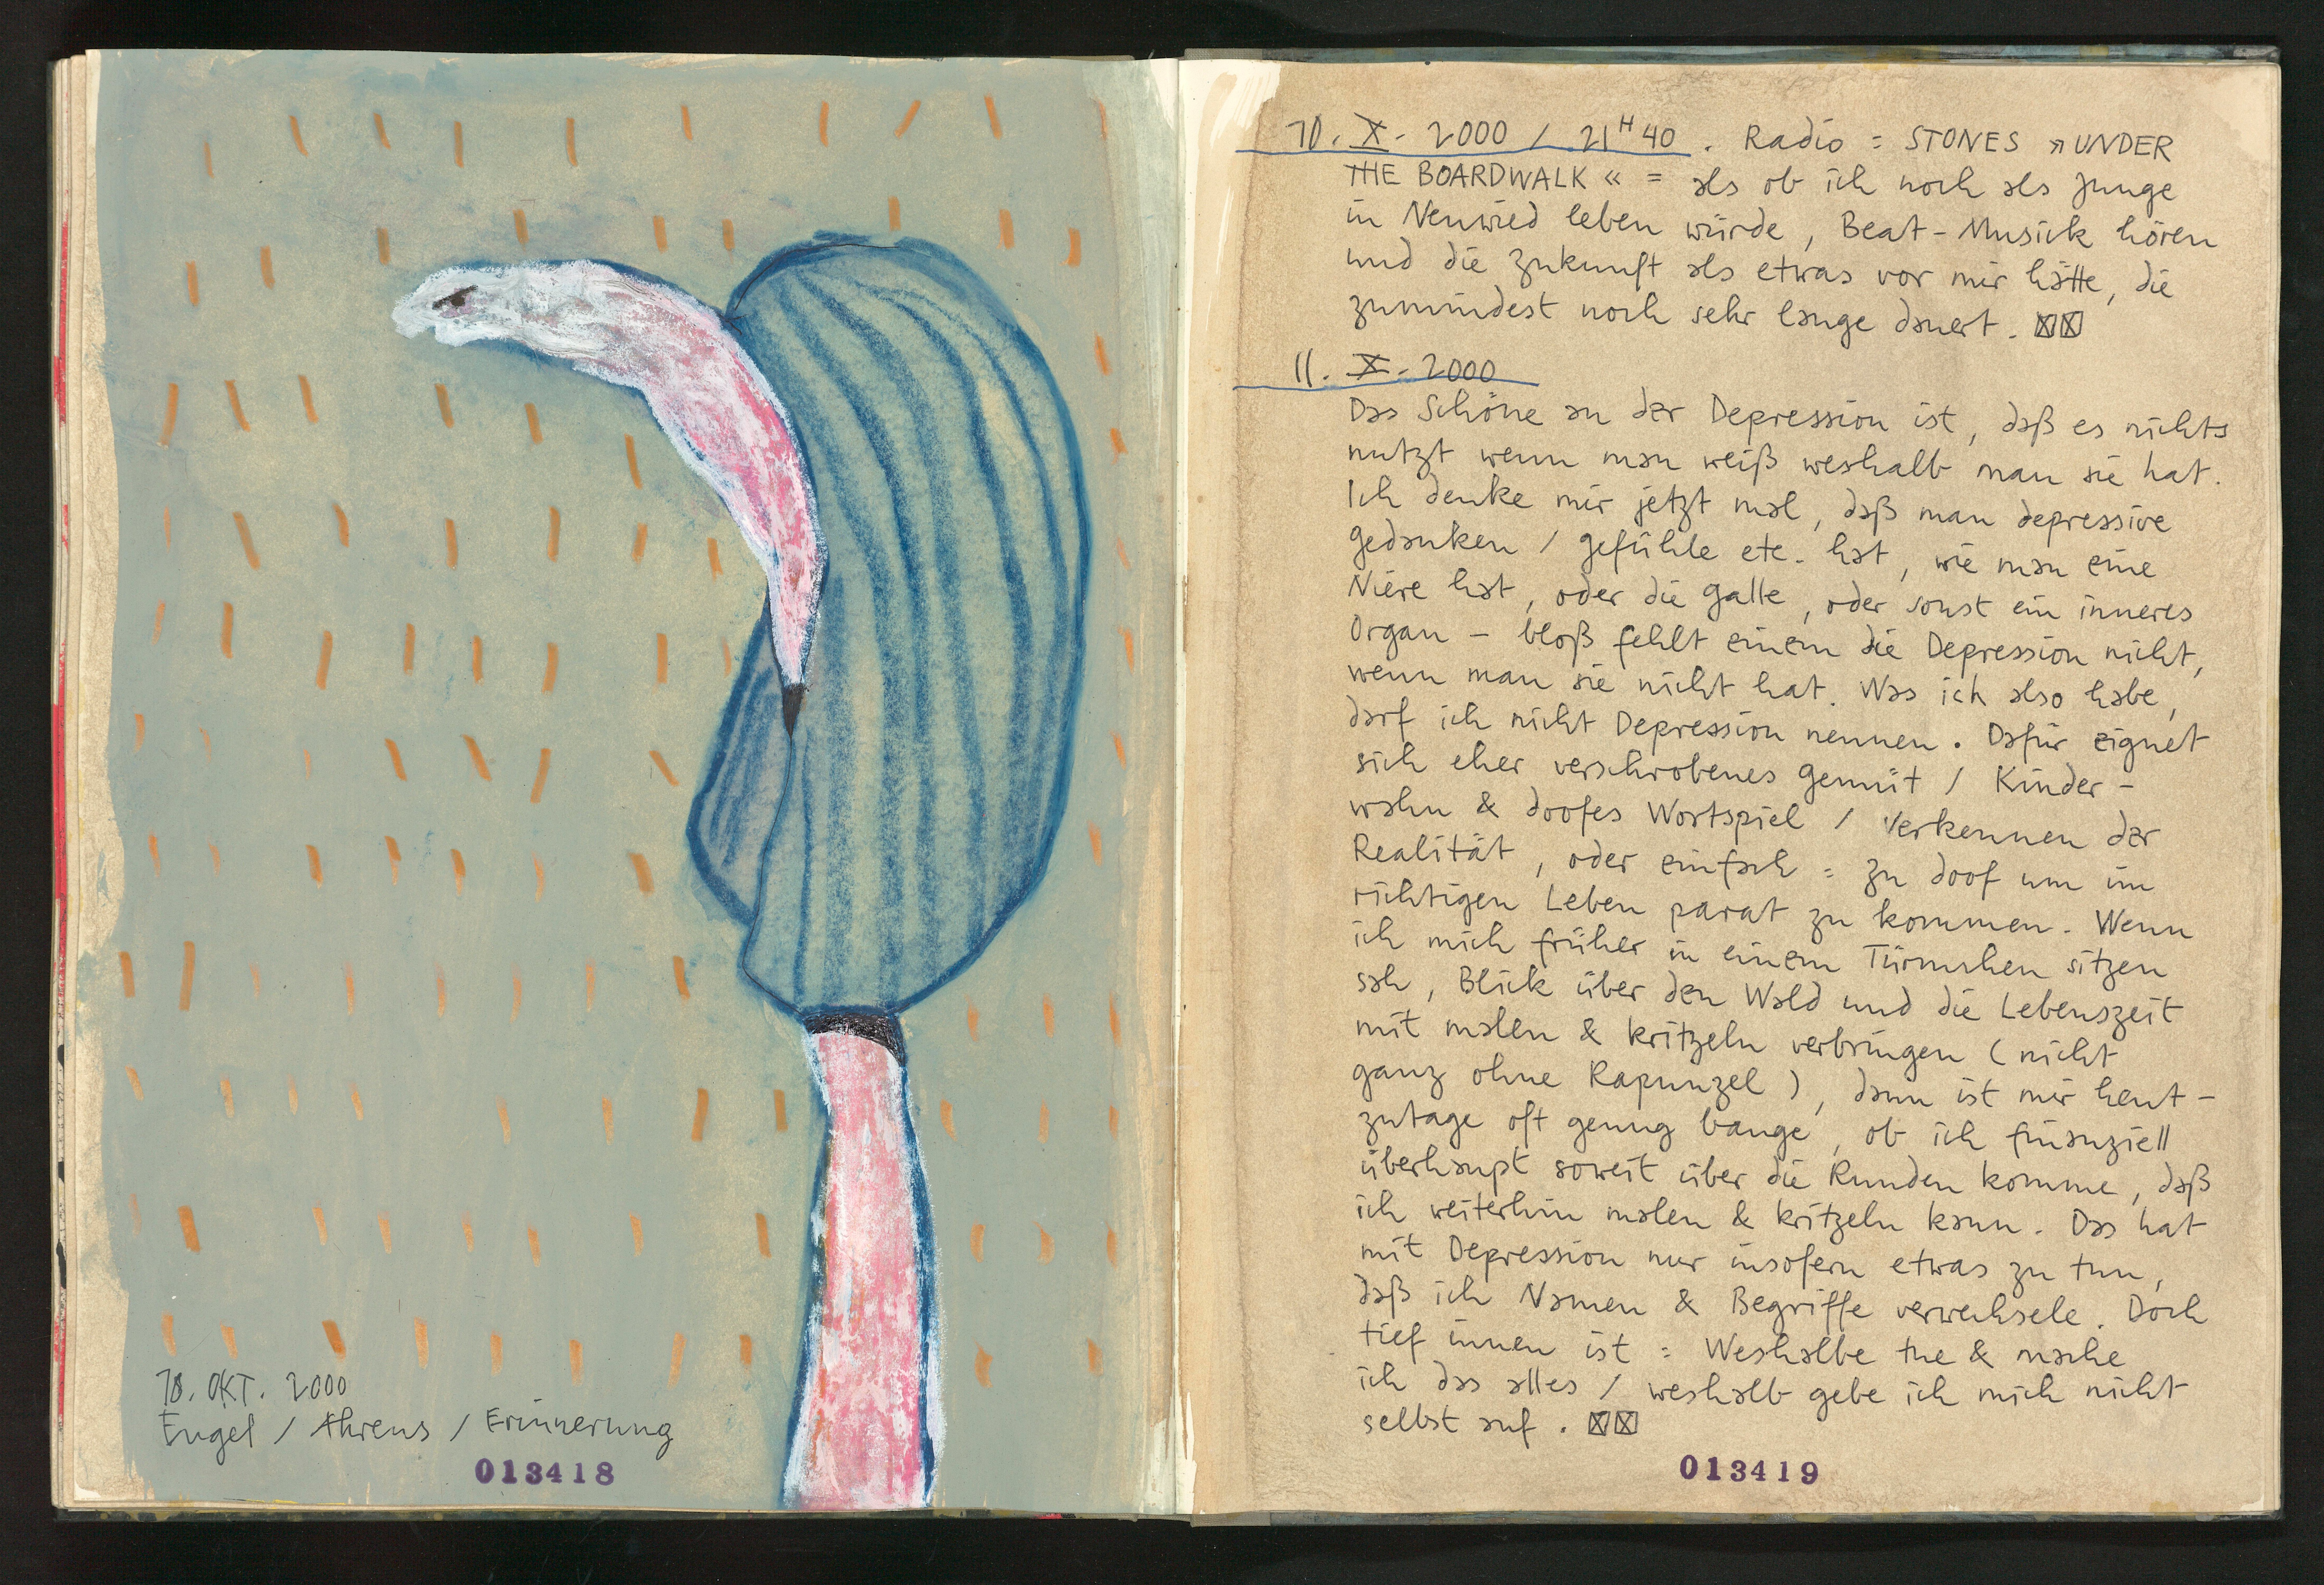 10. OKT. 2000
Engel / Ahrens / Erinnerung
013418
10. X. 2000 / 21H40. Radio = STONES »UNDER
THE BOARDWALK« = als ob ich noch als Junge
in Neuwied leben würde, Beat-Musick hören
und die Zukunft als etwas vor mir hätte, die
zumindest noch sehr lange dauert. ☒☒
11. X. 2000
Das Schöne an der Depression ist, daß es nichts
nutzt wenn man weiß weshalb man sie hat.
Ich denke mir jetzt mal, daß man depressive
Gedanken / Gefühle etc. hat, wie man eine
Niere hat, oder die Galle, oder sonst ein inneres
Organ – bloß fehlt einem die Depression nicht,
wenn man sie nicht hat. Was ich also habe,
darf ich nicht Depression nennen. Dafür eignet
sich eher verschrobenes Gemüt / Kinder-
wahn & doofes Wortspiel / Verkennen der
Realität, oder einfach = zu doof um im
richtigen Leben parat zu kommen. Wenn
ich mich früher in einem Türmchen sitzen
sah, Blick über den Wald und die Lebenszeit
mit malen & kritzeln verbringen (nicht
ganz ohne Rapunzel), dann ist mir heut-
zutage oft genug bange, ob ich finanziell
überhaupt soweit über die Runden komme, daß
ich weiterhin malen & kritzeln kann. Das hat
mit Depression nur insofern etwas zu tun,
daß ich Namen & Begriffe verwechsele. Doch
tief innen ist = Weshalbe tue & mache
ich das alles / weshalb gebe ich mich nicht
selbst auf. ☒☒
013419